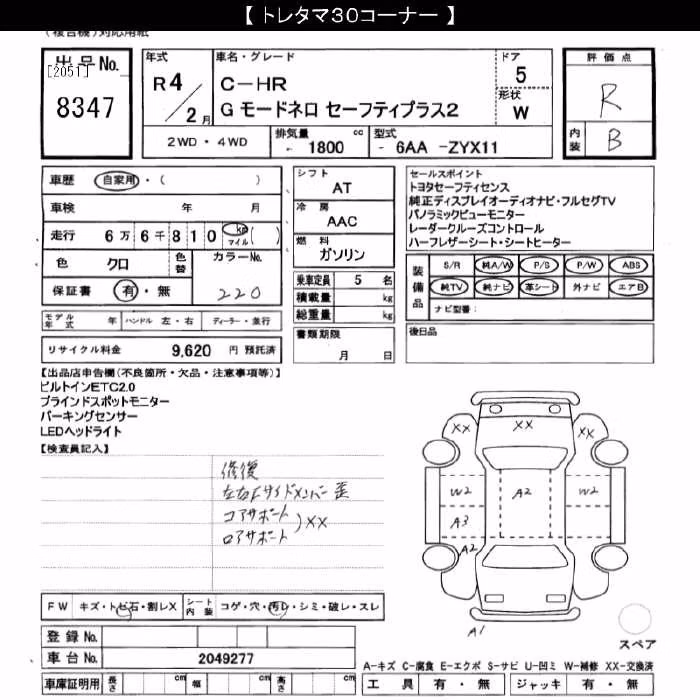 【 トレタマ30コーナー 】
(複合機)対応用紙
出品No.
[2051]
8347
年式
R 4 / 2 月
車名・グレード
C-HR
G モードネロ セーフティプラス2
ドア
5
形状
W
2WD・4WD
排気量 cc
- 1800
型式
- 6AA -ZYX11
評価点
R
内装
B
車歴 自家用・( )
車検 年 月
走行 6万6千810 km マイル ( )
色 クロ 色替 カラーNo.
保証書 有・無 220
モデル年式 年 ハンドル 左・右 ディーラー・並行
リサイクル料金 9,620 円 預託済
シフト
AT
冷房
AAC
燃料
ガソリン
乗車定員 5 名
積載量 kg
総重量 kg
書類期限
月 日
セールスポイント
トヨタセーフティセンス
純正ディスプレイオーディオナビ・フルセグTV
パノラミックビューモニター
レーダークルーズコントロール
ハーフレザーシート・シートヒーター
装備品
S/R 純A/W P/S P/W ABS
純TV 純ナビ 革シート 外ナビ エアB
ナビ型番:
後日品
【出品店申告欄(不良箇所・欠品・注意事項等)】
ビルトインETC2.0
ブラインドスポットモニター
パーキングセンサー
LEDヘッドライト
【検査員記入】
修復
左右Fサイドメンバー歪
コアサポート
ロアサポート ) XX
XX XX XX
W2 A2 W2
A3
A2
A1
スペア
FW キズ・トビ石・割レX シート内装 コゲ・穴・汚レ・シミ・破レ・スレ
登録No.
車台No. 2049277
車庫証明用 長さ cm 幅 cm 高さ cm
A-キズ C-腐食 E-エクボ S-サビ U-凹ミ W-補修 XX-交換済
工具 有・無 ジャッキ 有・無